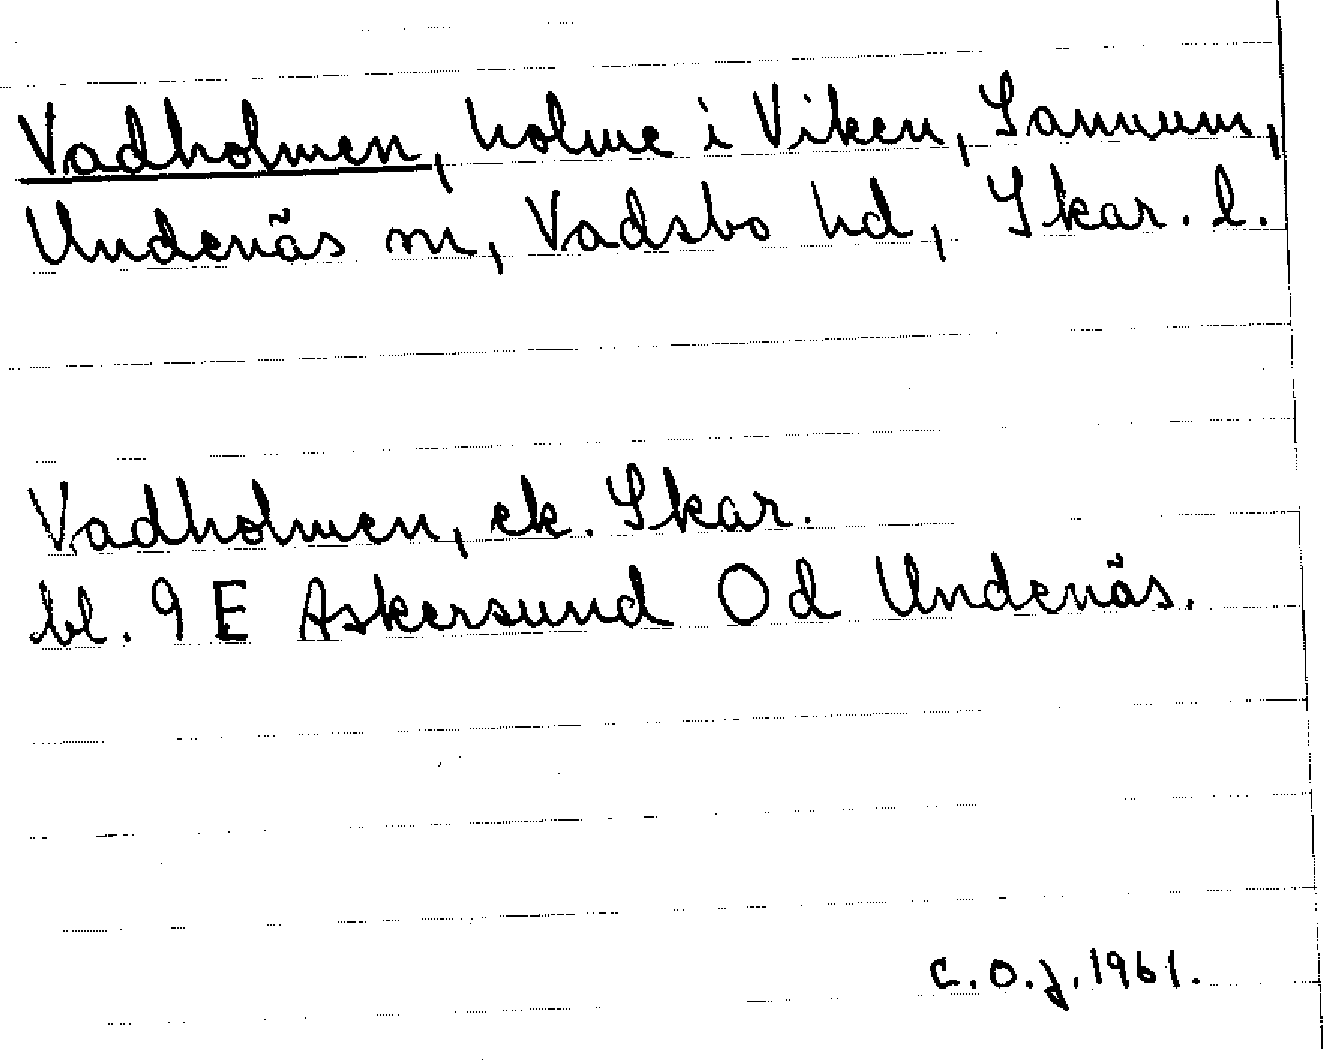 Vadholmen, holme i Viken, Sannum,
Undenäs sn, Vadsbo hd, Skar. l.
Vadholmen, ek. Skar.
bl. 9 E Askersund Od Undenäs.
C.O.J. 1961.